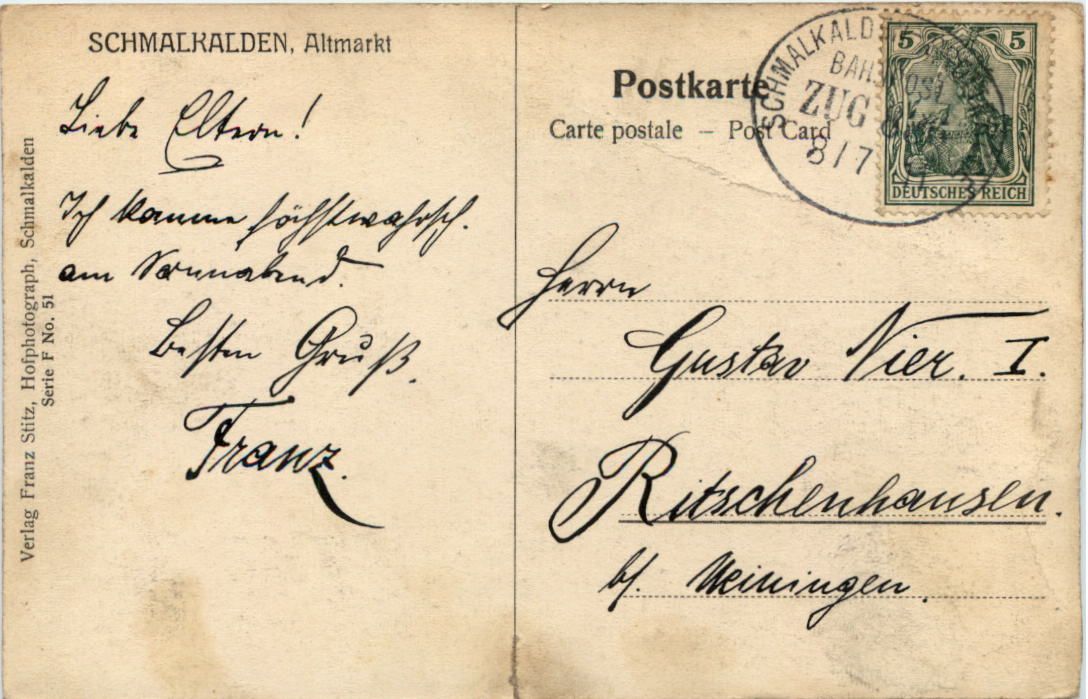 SCHMALKALDEN, Altmarkt
Liebe Eltern!
Ich komme höchstwahrsch.
am Sonnabend.
Besten Gruß.
Franz.
Verlag Franz Stitz, Hofphotograph, Schmalkalden
Serie F No. 51
Postkarte
Carte postale – Post Card
SCHMALKALDEN
BAHNPOST
ZUG
8/7
5 5
DEUTSCHES REICH
Herrn
Gustav Nier. I.
Ritschenhausen.
b/. Meiningen.